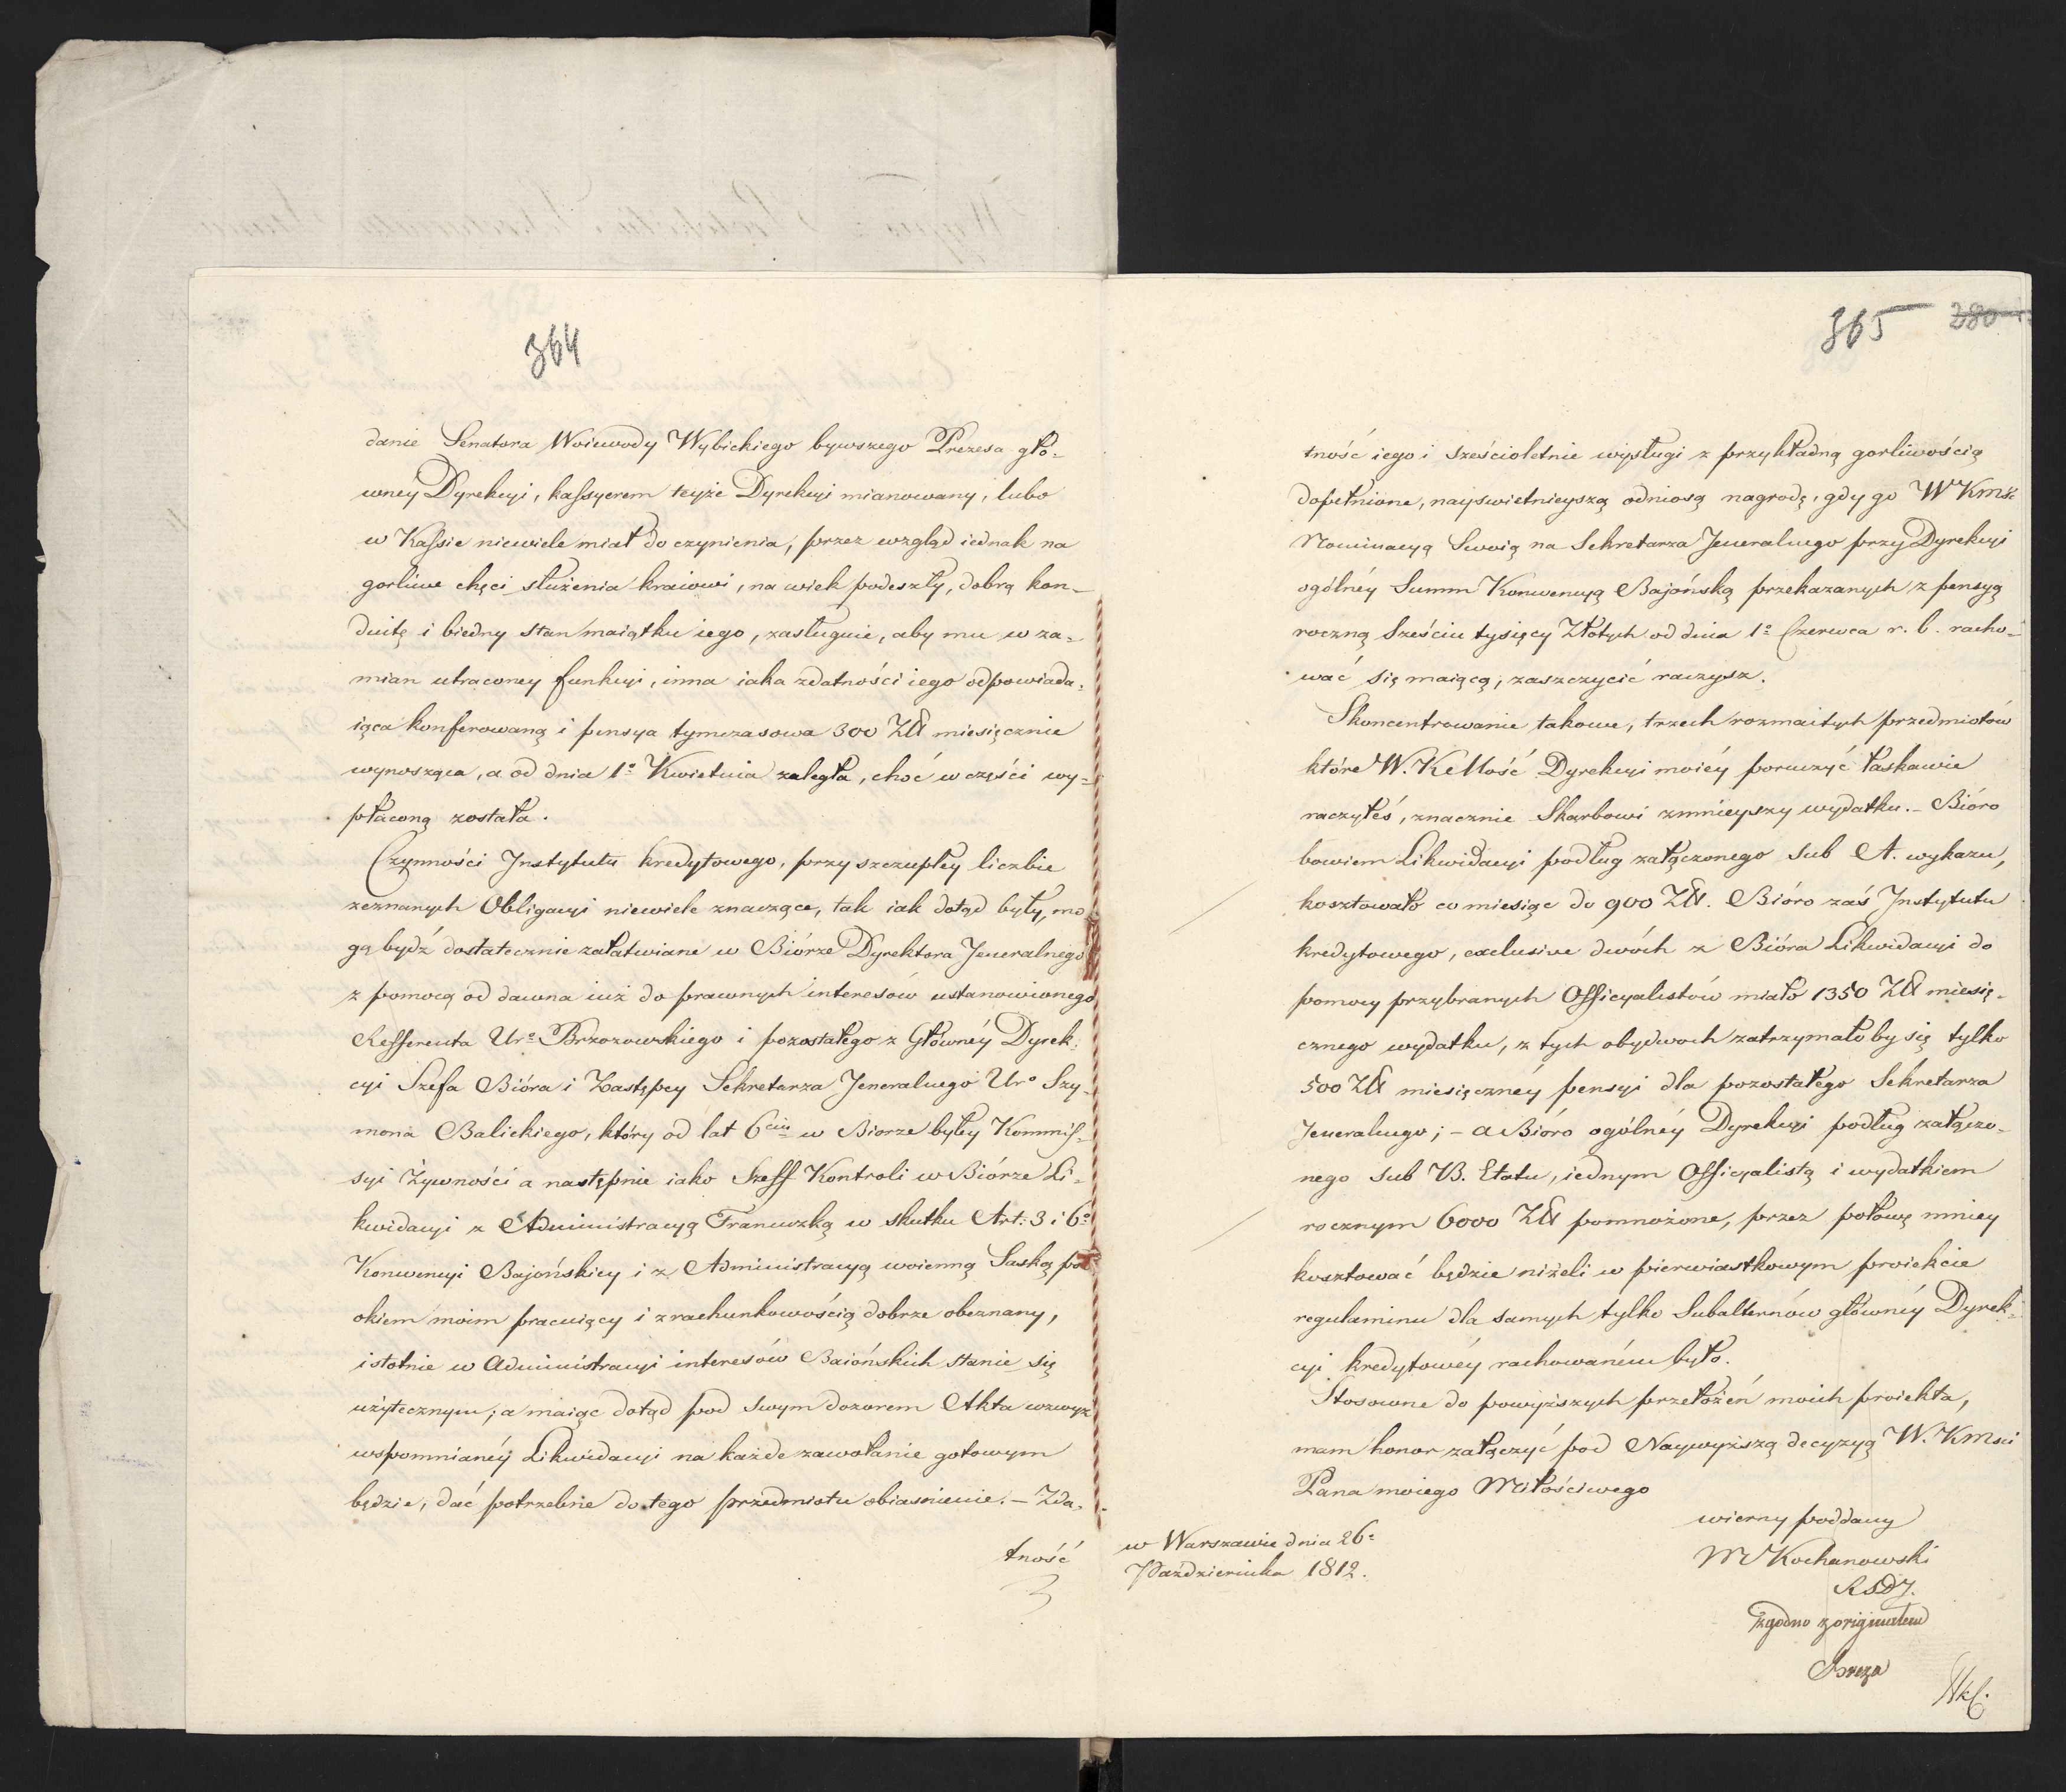 364
danie Senatora Woiewody Wybickiego bywszego Prezesa głó-
wney Dyrekcyi, kassyerem teyże Dyrekcyi mianowany, lubo
w Kassie niewiele miał do czynienia, przez wzgląd iednak na
gorliwe chęci służenia kraiowi, na wiek podeszły, dobrą kon-
duitę i biedny stan maiątku iego, zasługuie, aby mu w za-
mian utraconey funkcyi, inna iaka zdatności iego odpowiada-
iąca konferowaną i pensya tymczasowa 300 Zł miesięcznie
wynosząca, a od dnia 1º Kwietnia zaległa, choć w części wy-
płaconą została.
Czynności Jnstytutu kredytowego, przy szczupłey liczbie
zeznanych Obligacyi niewiele znaczące, tak iak dotąd były, mo
gą bydź dostatecznie załatwiane w Biórze Dyrektora Jeneralnego
z pomocą od dawna iuż do prawnych interesów ustanowionego
Refferenta Urº Brzozowskiego i pozostałego z Główney Dyrek-
cyi Szefa Bióra i Zastępcy Sekretarza Jeneralnego Urº Szy-
mona Balickiego, który od lat 6ciu w Biorze byłey Kommis-
syi Żywności a następnie iako Szeff Kontroli w Biórze Li-
kwidacyi z Administracyą Francuzką w skutku Art: 3 i 6º
Konwencyi Bajońskiey i z Administracyą woienną Saską pod
okiem moim pracuiący i z rachunkowością dobrze obeznany,
istotnie w Administracyi interesów Baiońskich stanie się
użytecznym; a maiąc dotąd pod swym dozorem Akta wzwyż
wspomnianéy Likwidacyi na każde zawołanie gotowym
będzie, dać potrzebne do tego przedmiotu obiasnienie. – Zda-
tność
365 280
tność iego i sześcioletnie wysługi z przykładną gorliwością
dopełnione, nayswietnieyszą odniosą nagrodę, gdy go WKMść
Nominacyą Swoią na Sekretarza Jeneralnego przy Dyrekcyi
ogólnéy Summ Konwencyą Bajońską przekazanych z pensyą
roczną Sześciu tysięcy Złotych od dnia 1º Czerwca r. b. racho-
wać się maiącą, zaszczycić raczysz.
Skoncentrowanie takowe, trzech rozmaitych przedmiotów
które W. KeMość Dyrekcyi moiéy poruczyć łaskawie
raczyłeś, znacznie Skarbowi zmnieyszy wydatku. – Bióro
bowiem Likwidacyi podług załączonego sub A. wykazu,
kosztowało co miesiąc do 900 Zł. Bióro zaś Jnstytutu
kredytowego, exclusive dwóch z Bióra Likwidacyi do
pomocy przybranych Officyalistów miało 1350 Zł miesię-
cznego wydatku, z tych obydwoch zatrzymało by się tylko
500 Zł miesięcznéy pensyi dla pozostałego Sekretarza
Jeneralnego; – a Bióro ogólnéy Dyrekcyi podług załączo-
nego sub B. Etatu, iednym Officyalistą i wydatkiem
rocznym 6000 Zł pomnożone, przez połowę mniey
kosztować będzie niżeli w pierwiastkowym proiekcie
regulaminu dla samych tylko Subalternów głównéy Dyrek-
cyi kredytowéy rachowaném było.
Stosowne do powyższych przełożeń moich proiekta,
mam honor załączyć pod Naywyższą decyzyą W. KMsci
Pana moiego Miłościwego
wierny poddany
w Warszawie dnia 26º
Pazdziernika 1812.
M Kochanowski
RSDJ.
zgodno z originałem
Breza